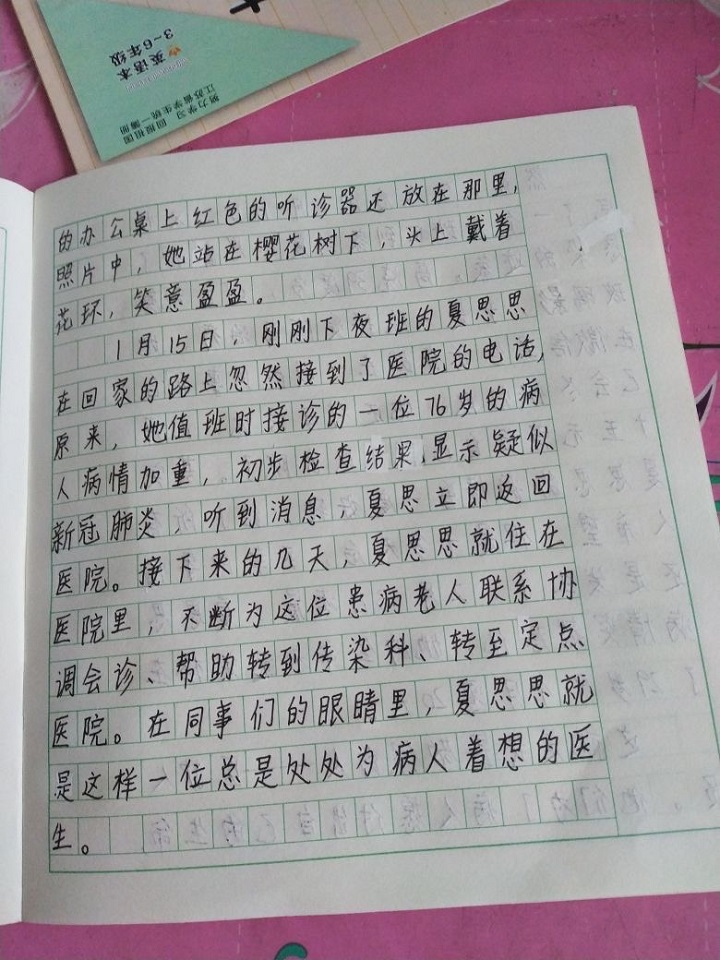 英语本
3~6年级
努力学习 回报祖国
江苏省学生统一簿册
的办公桌上红色的听诊器还放在那里,
照片中,她站在樱花树下,头上戴着
花环,笑意盈盈。
1月15日,刚刚下夜班的夏思思
在回家的路上忽然接到了医院的电话,
原来,她值班时接诊的一位76岁的病
人病情加重,初步检查结果显示疑似
新冠肺炎,听到消息,夏思立即返回
医院。接下来的几天,夏思思就住在
医院里,不断为这位患病老人联系协
调会诊、帮助转到传染科、转至定点
医院。在同事们的眼睛里,夏思思就
是这样一位总是处处为病人着想的医
生。